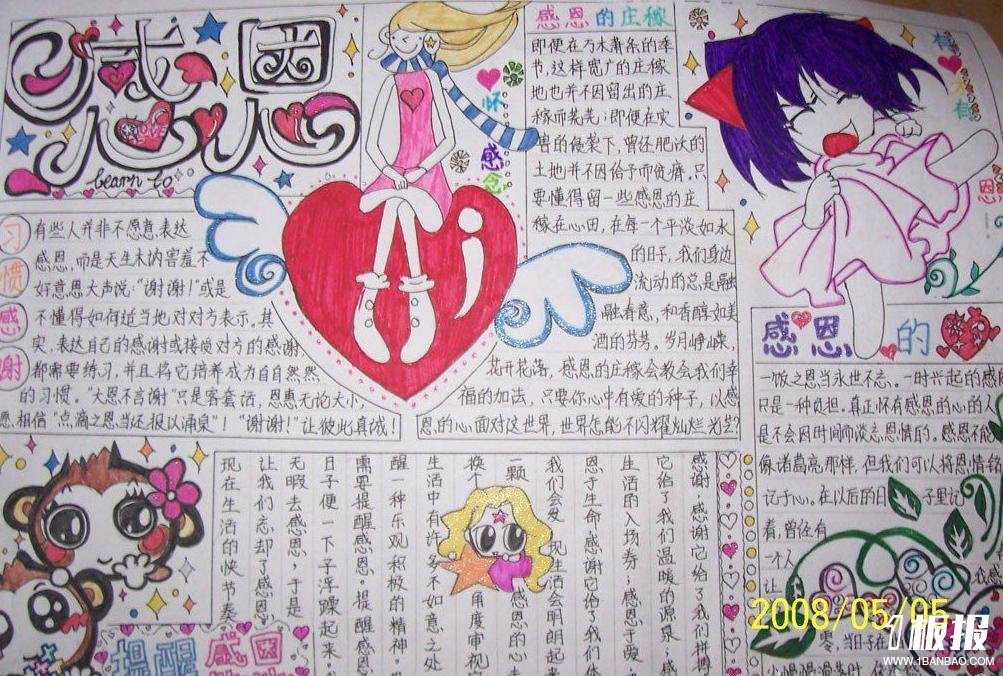 感恩
learn to
习惯感谢
有些人并非不愿意表达
感恩,而是天生木讷害羞不
好意思大声说:“谢谢!”或是
不懂得如何适当地对对方表示,其
实,表达自己的感谢或接受对方的感谢,
都需要练习,并且将它培养成为自自然然
的习惯。“大恩不言谢”只是客套话,恩惠无论大小,
愿相信“点滴之恩当还报以涌泉”!“谢谢!”让彼此真诚!
怀感念
感恩的庄稼
即便在万木萧条的季
节,这样宽广的庄稼
地也并不因留出的庄
稼而荒芜;即便在灾
害的侵袭下,曾经肥沃的
土地并不因给予而疲瘠,只
要懂得留一些感恩的庄
稼在心田,在每一个平淡如水
的日子,我们身边
流动的总是融
融春意,和香醇如美
酒的芬芳。岁月峥嵘,
花开花落,感恩的庄稼会教会我们幸
福的加法,只要你心中有爱的种子,以感
恩的心面对这世界,世界怎能不闪耀灿烂光芒?
感恩的
一饭之恩当永世不忘。一时兴起的感
只是一种负担。真正怀有感恩的心的人
是不会因时间而淡忘恩情的。感恩不能
像诸葛亮那样,但我们可以将恩情铭
记于心。在以后的日子里记
着,曾经有
一个人
让
零,当日子在
提醒感恩
感谢,感谢它给了我们拼搏
它给了我们温暖的源泉;感
生活的入场券;感恩于爱
恩于生命,感谢它给了我们体
我们会发现生活会明朗起
一颗感恩的心
换个角度审视
生活中有许多不如意之处
醒一种乐观积极的精神。
需要提醒感恩。提醒感恩
日子便一下子浮躁起来
无暇去感恩,于是
让我们忘却了感恩
现在生活的快节奏
2008/05/05
板报
WWW.1BANBAO.COM